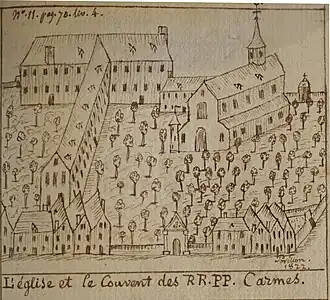 N°. 11. pag. 70. liv. 4.
1822.
L'église et le Couvent des RR.PP. Carmes.